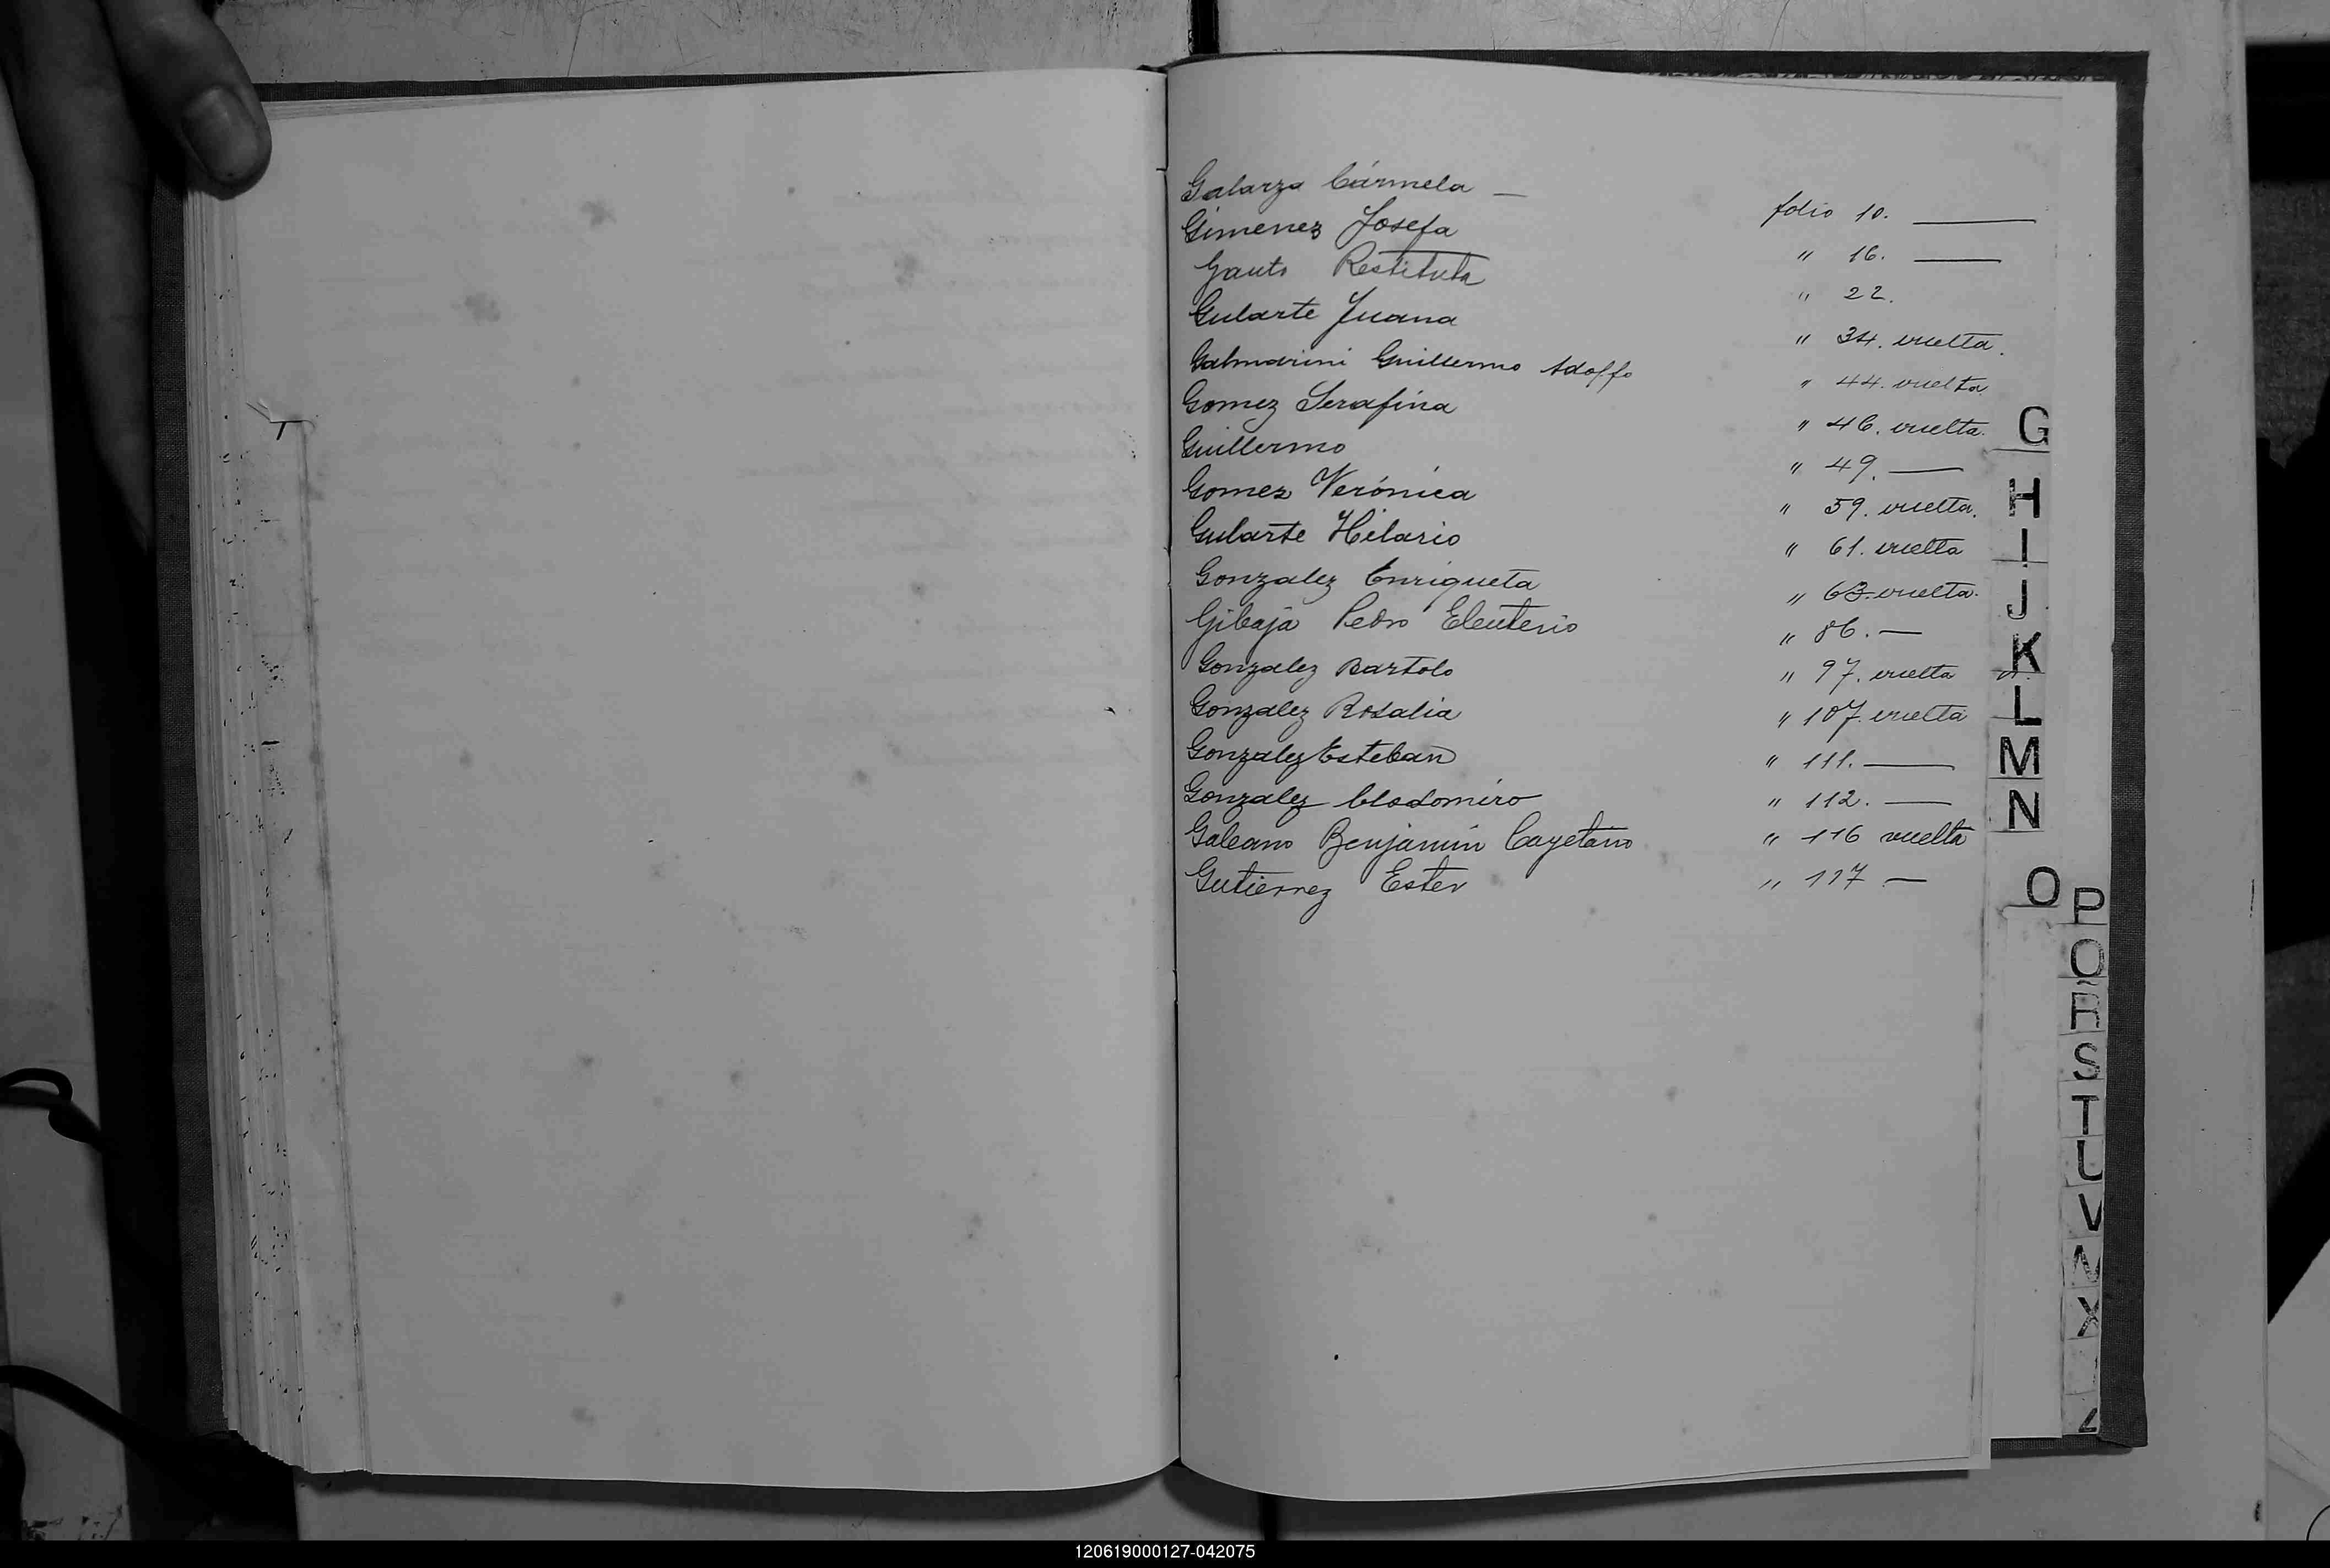 Galarza Cármela — folio 10. —
Gimenez Josefa " 16. —
Gauto Restituta " 22.
Gularte Juana " 34. vuelta.
Galmarini Guillermo Adolfo " 44. vuelta.
Gomez Serafina " 46. vuelta.
Guillermo " 49. —
Gomez Verónica " 59. vuelta.
Gularte Hilario " 61. vuelta
Gonzalez Enriqueta " 63. vuelta.
Gibaja Pedro Eleuterio " 86. —
Gonzalez Bartolo " 97. vuelta
Gonzalez Rosalia " 107. vuelta
Gonzalez Esteban " 111. —
Gonzalez Clodomiro " 112. —
Galeano Benjamin Cayetano " 116 vuelta
Gutierrez Ester " 117 —
G
H
I
J
K
L
M
N
O
P
Q
R
S
T
U
V
X
Z
120619000127-042075